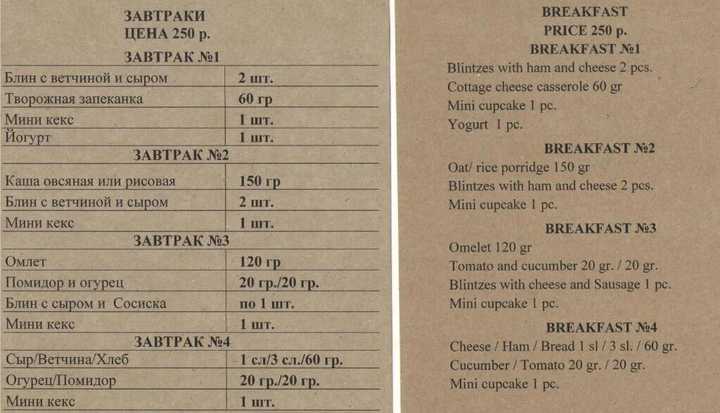 ЗАВТРАКИ
ЦЕНА 250 р.
ЗАВТРАК №1
Блин с ветчиной и сыром 2 шт.
Творожная запеканка 60 гр
Мини кекс 1 шт.
Йогурт 1 шт.
ЗАВТРАК №2
Каша овсяная или рисовая 150 гр
Блин с ветчиной и сыром 2 шт.
Мини кекс 1 шт.
ЗАВТРАК №3
Омлет 120 гр
Помидор и огурец 20 гр./20 гр.
Блин с сыром и Сосиска по 1 шт.
Мини кекс 1 шт.
ЗАВТРАК №4
Сыр/Ветчина/Хлеб 1 сл/3 сл./60 гр.
Огурец/Помидор 20 гр./20 гр.
Мини кекс 1 шт.
BREAKFAST
PRICE 250 р.
BREAKFAST №1
Blintzes with ham and cheese 2 pcs.
Cottage cheese casserole 60 gr
Mini cupcake 1 pc.
Yogurt 1 pc.
BREAKFAST №2
Oat/ rice porridge 150 gr
Blintzes with ham and cheese 2 pcs.
Mini cupcake 1 pc.
BREAKFAST №3
Omelet 120 gr
Tomato and cucumber 20 gr. / 20 gr.
Blintzes with cheese and Sausage 1 pc.
Mini cupcake 1 pc.
BREAKFAST №4
Cheese / Ham / Bread 1 sl / 3 sl. / 60 gr.
Cucumber / Tomato 20 gr. / 20 gr.
Mini cupcake 1 pc.